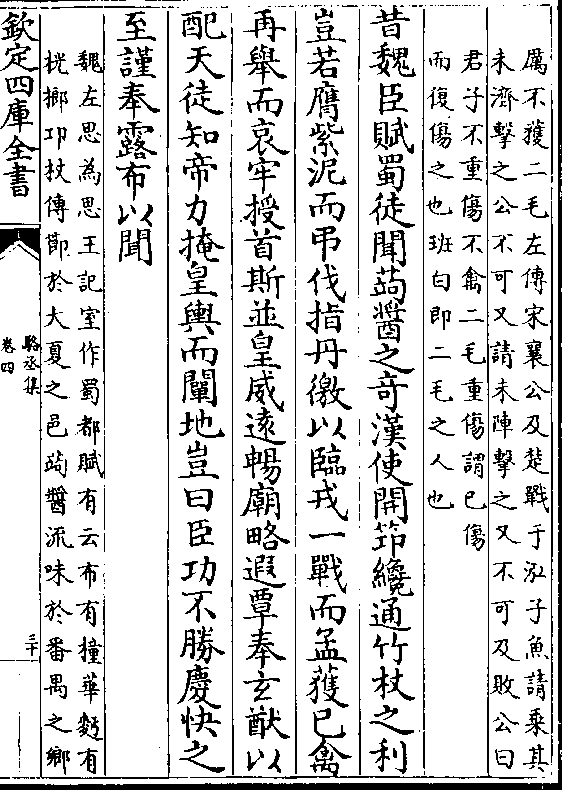 厲不獲二毛左傳宋襄公及楚戰于泓子魚請乘其
未濟擊之公不可又請未陣擊之又不可及敗公曰
君子不重傷不禽二毛重傷謂已傷
而復傷之也班白即二毛之人也
昔魏臣賦蜀徒聞蒟醬之奇漢使開笻纔通竹杖之利
豈若膺紫泥而弔伐指丹徼以臨戎一戰而孟獲已禽
再舉而哀牢授首斯並皇威遠暢廟略遐覃奉玄猷以
配天徒知帝力掩皇輿而闡地豈曰臣功不勝慶快之
至謹奉露布以聞
魏左思為思王記室作蜀都賦有云布有橦華麪有
桄榔邛杖傳節於大夏之邑蒟醬流味於番禺之鄉
欽定四庫全書
駱丞集
卷四
三十